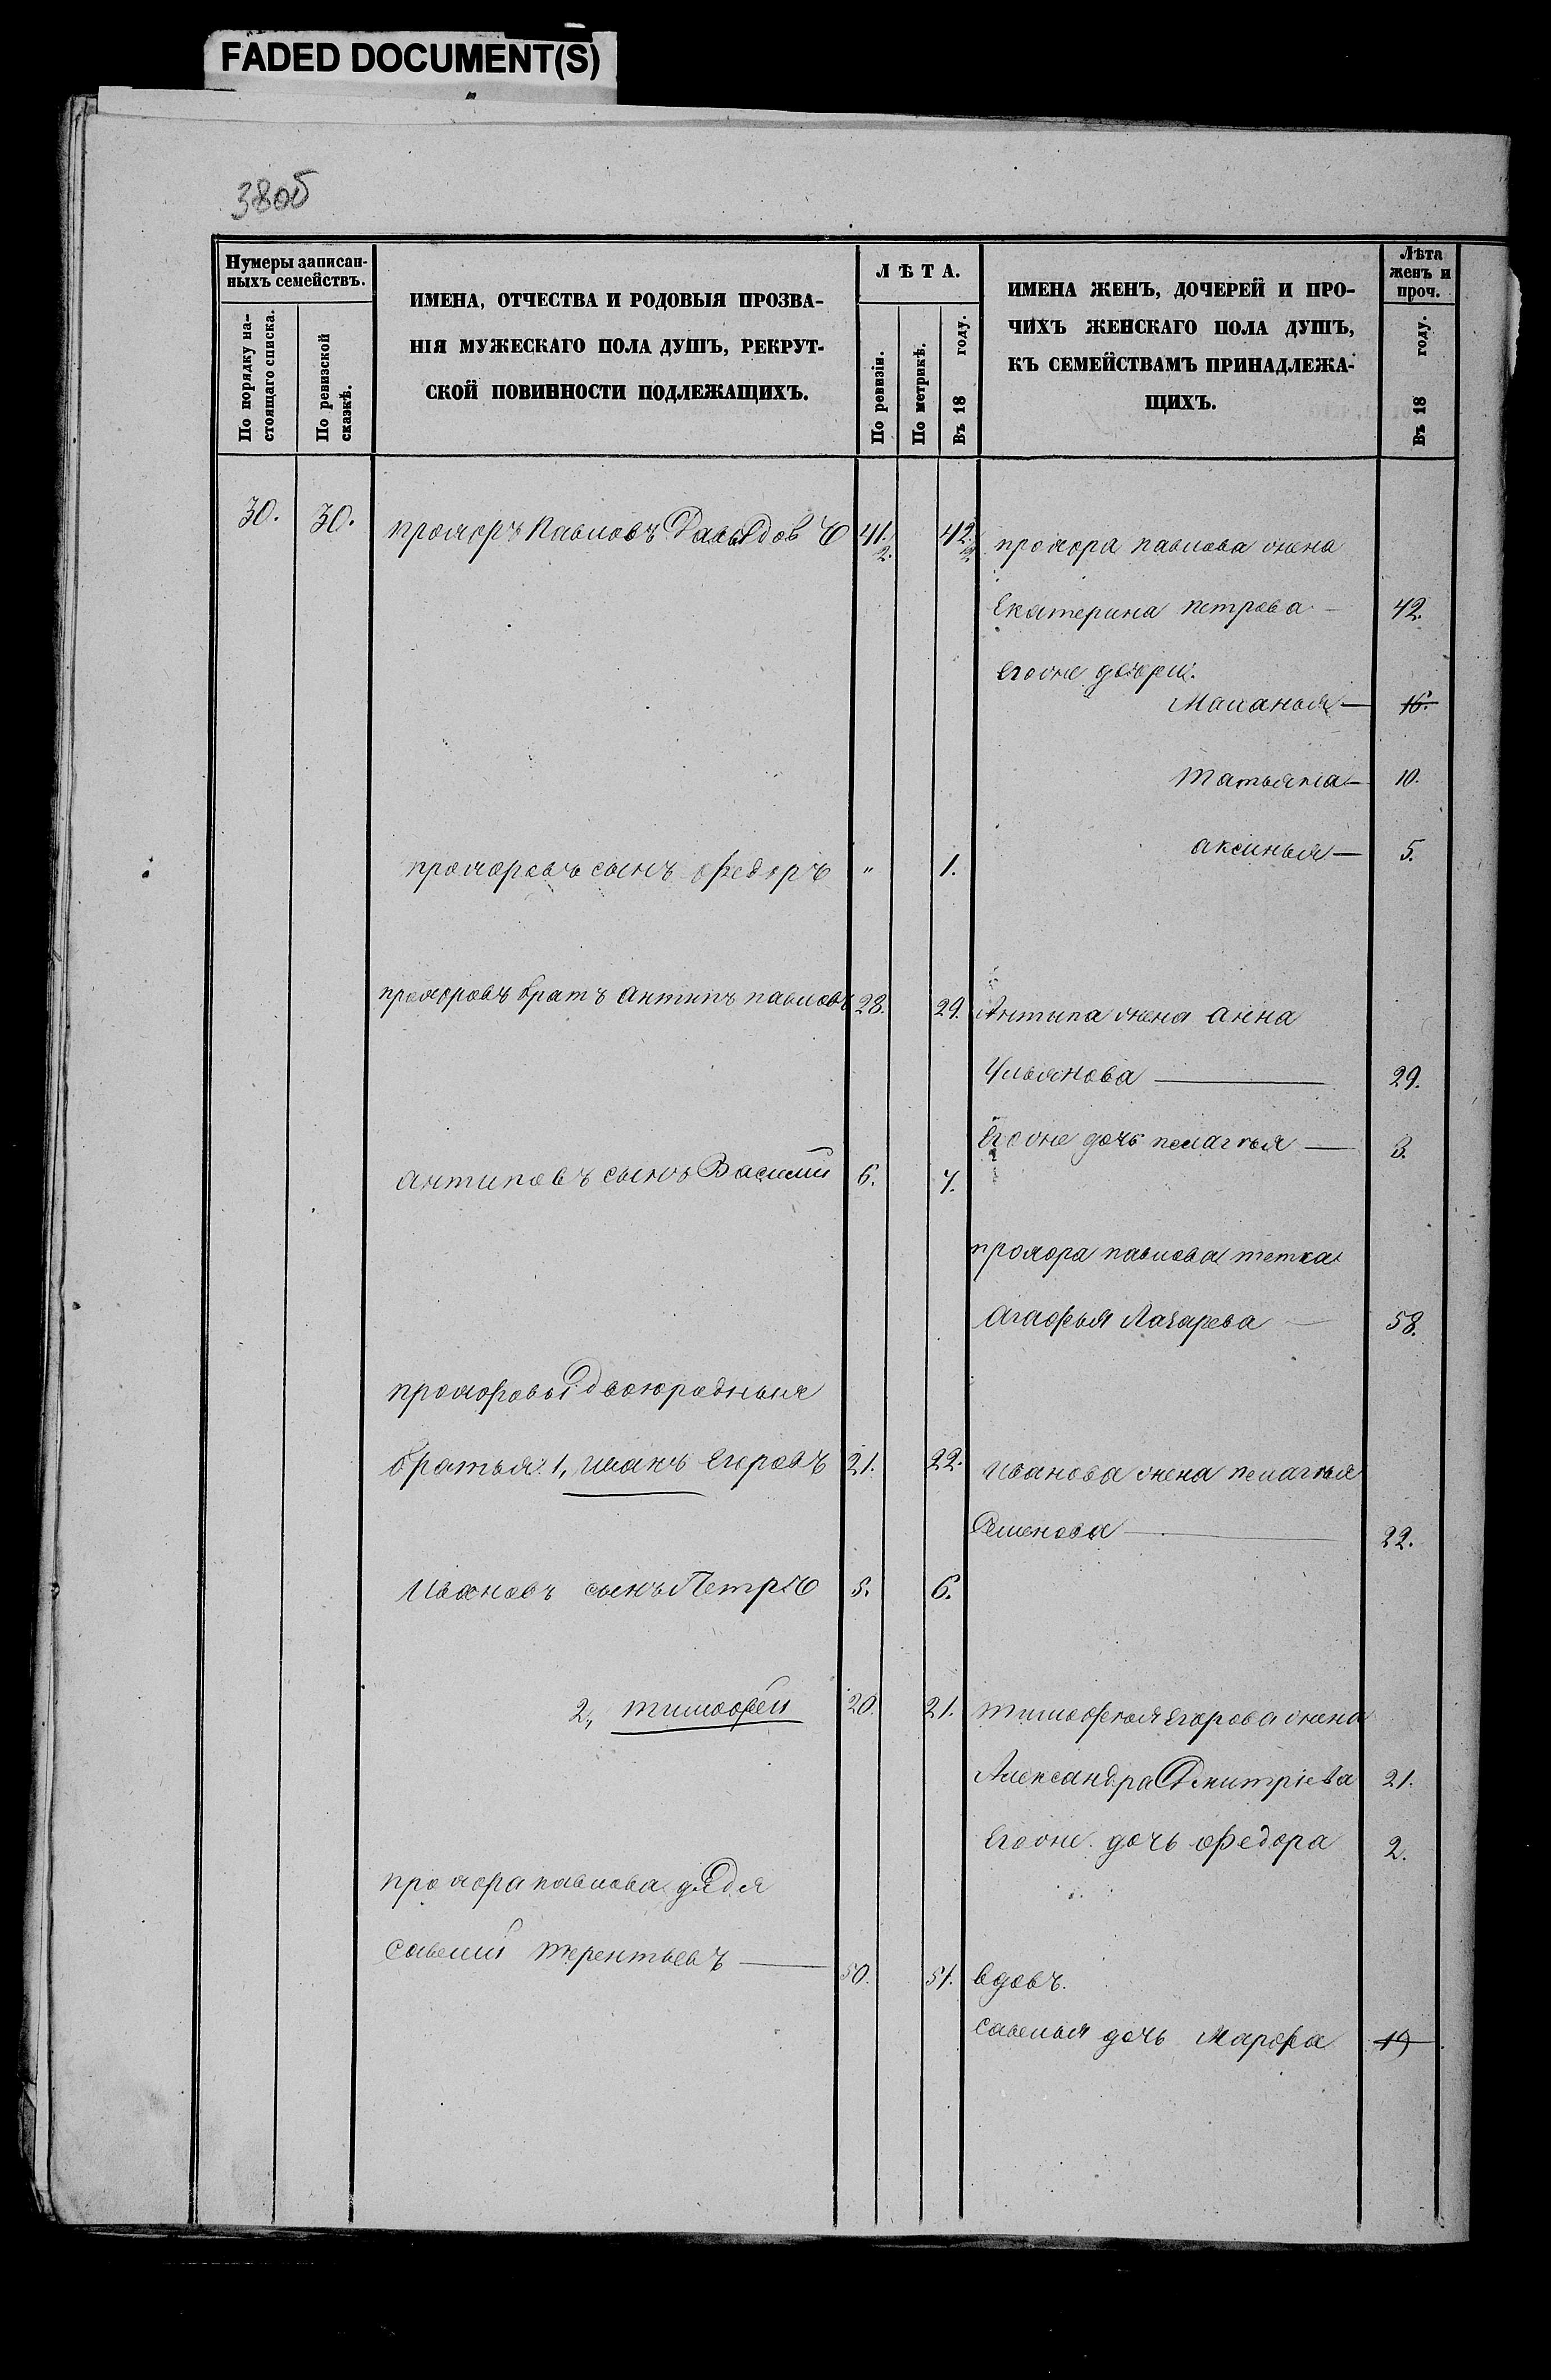 FADED DOCUMENT(S)
38об
Нумеры записан-
ныхъ семействъ.
По порядку на-
стоящаго списка.
По ревизской
сказкѣ.
ИМЕНА, ОТЧЕСТВА И РОДОВЫЯ ПРОЗВА-
НІЯ МУЖЕСКАГО ПОЛА ДУШЪ, РЕКРУТ-
СКОЙ ПОВИННОСТИ ПОДЛЕЖАЩИХЪ.
ЛѢТА.
По ревизіи.
По метрикѣ.
Въ 18 году.
ИМЕНА ЖЕНЪ, ДОЧЕРЕЙ И ПРО-
ЧИХЪ ЖЕНСКАГО ПОЛА ДУШЪ,
КЪ СЕМЕЙСТВАМЪ ПРИНАДЛЕЖА-
ЩИХЪ.
Лѣта
женъ и
проч.
Въ 18 году.
30. 30. прохоръ Павловъ Давыдовъ 41. 2. 42.
прохора павлова жена
Екатерина петрова — 42.
егоже дочери.
Маланья — 16.
татьяна — 10.
аксинья — 5.
прохоровъ сынъ федоръ " 1.
прохоровъ братъ антипъ павловъ 28. 29. Антипа жена анна
Ульянова — 29.
Егоже дочь пелагѣя — 3.
антиповъ сынъ Василий 6. 7.
прохора павлова тетка
агафья Лазарева — 58.
прохоровы двоюродныя
братья: 1, иванъ Егоровъ 21. 22. Иванова жена пелагѣя
Семенова — 22.
Ивановъ сынъ Петръ 5. 6.
2, тимофей 20. 21. тимофея Егорова жена
Александра Дмитріева 21.
Егоже дочь федора 2.
прохора павлова дядя
савелий терентьевъ — 50. 51. вдовъ.
савелья дочь Марфа 19